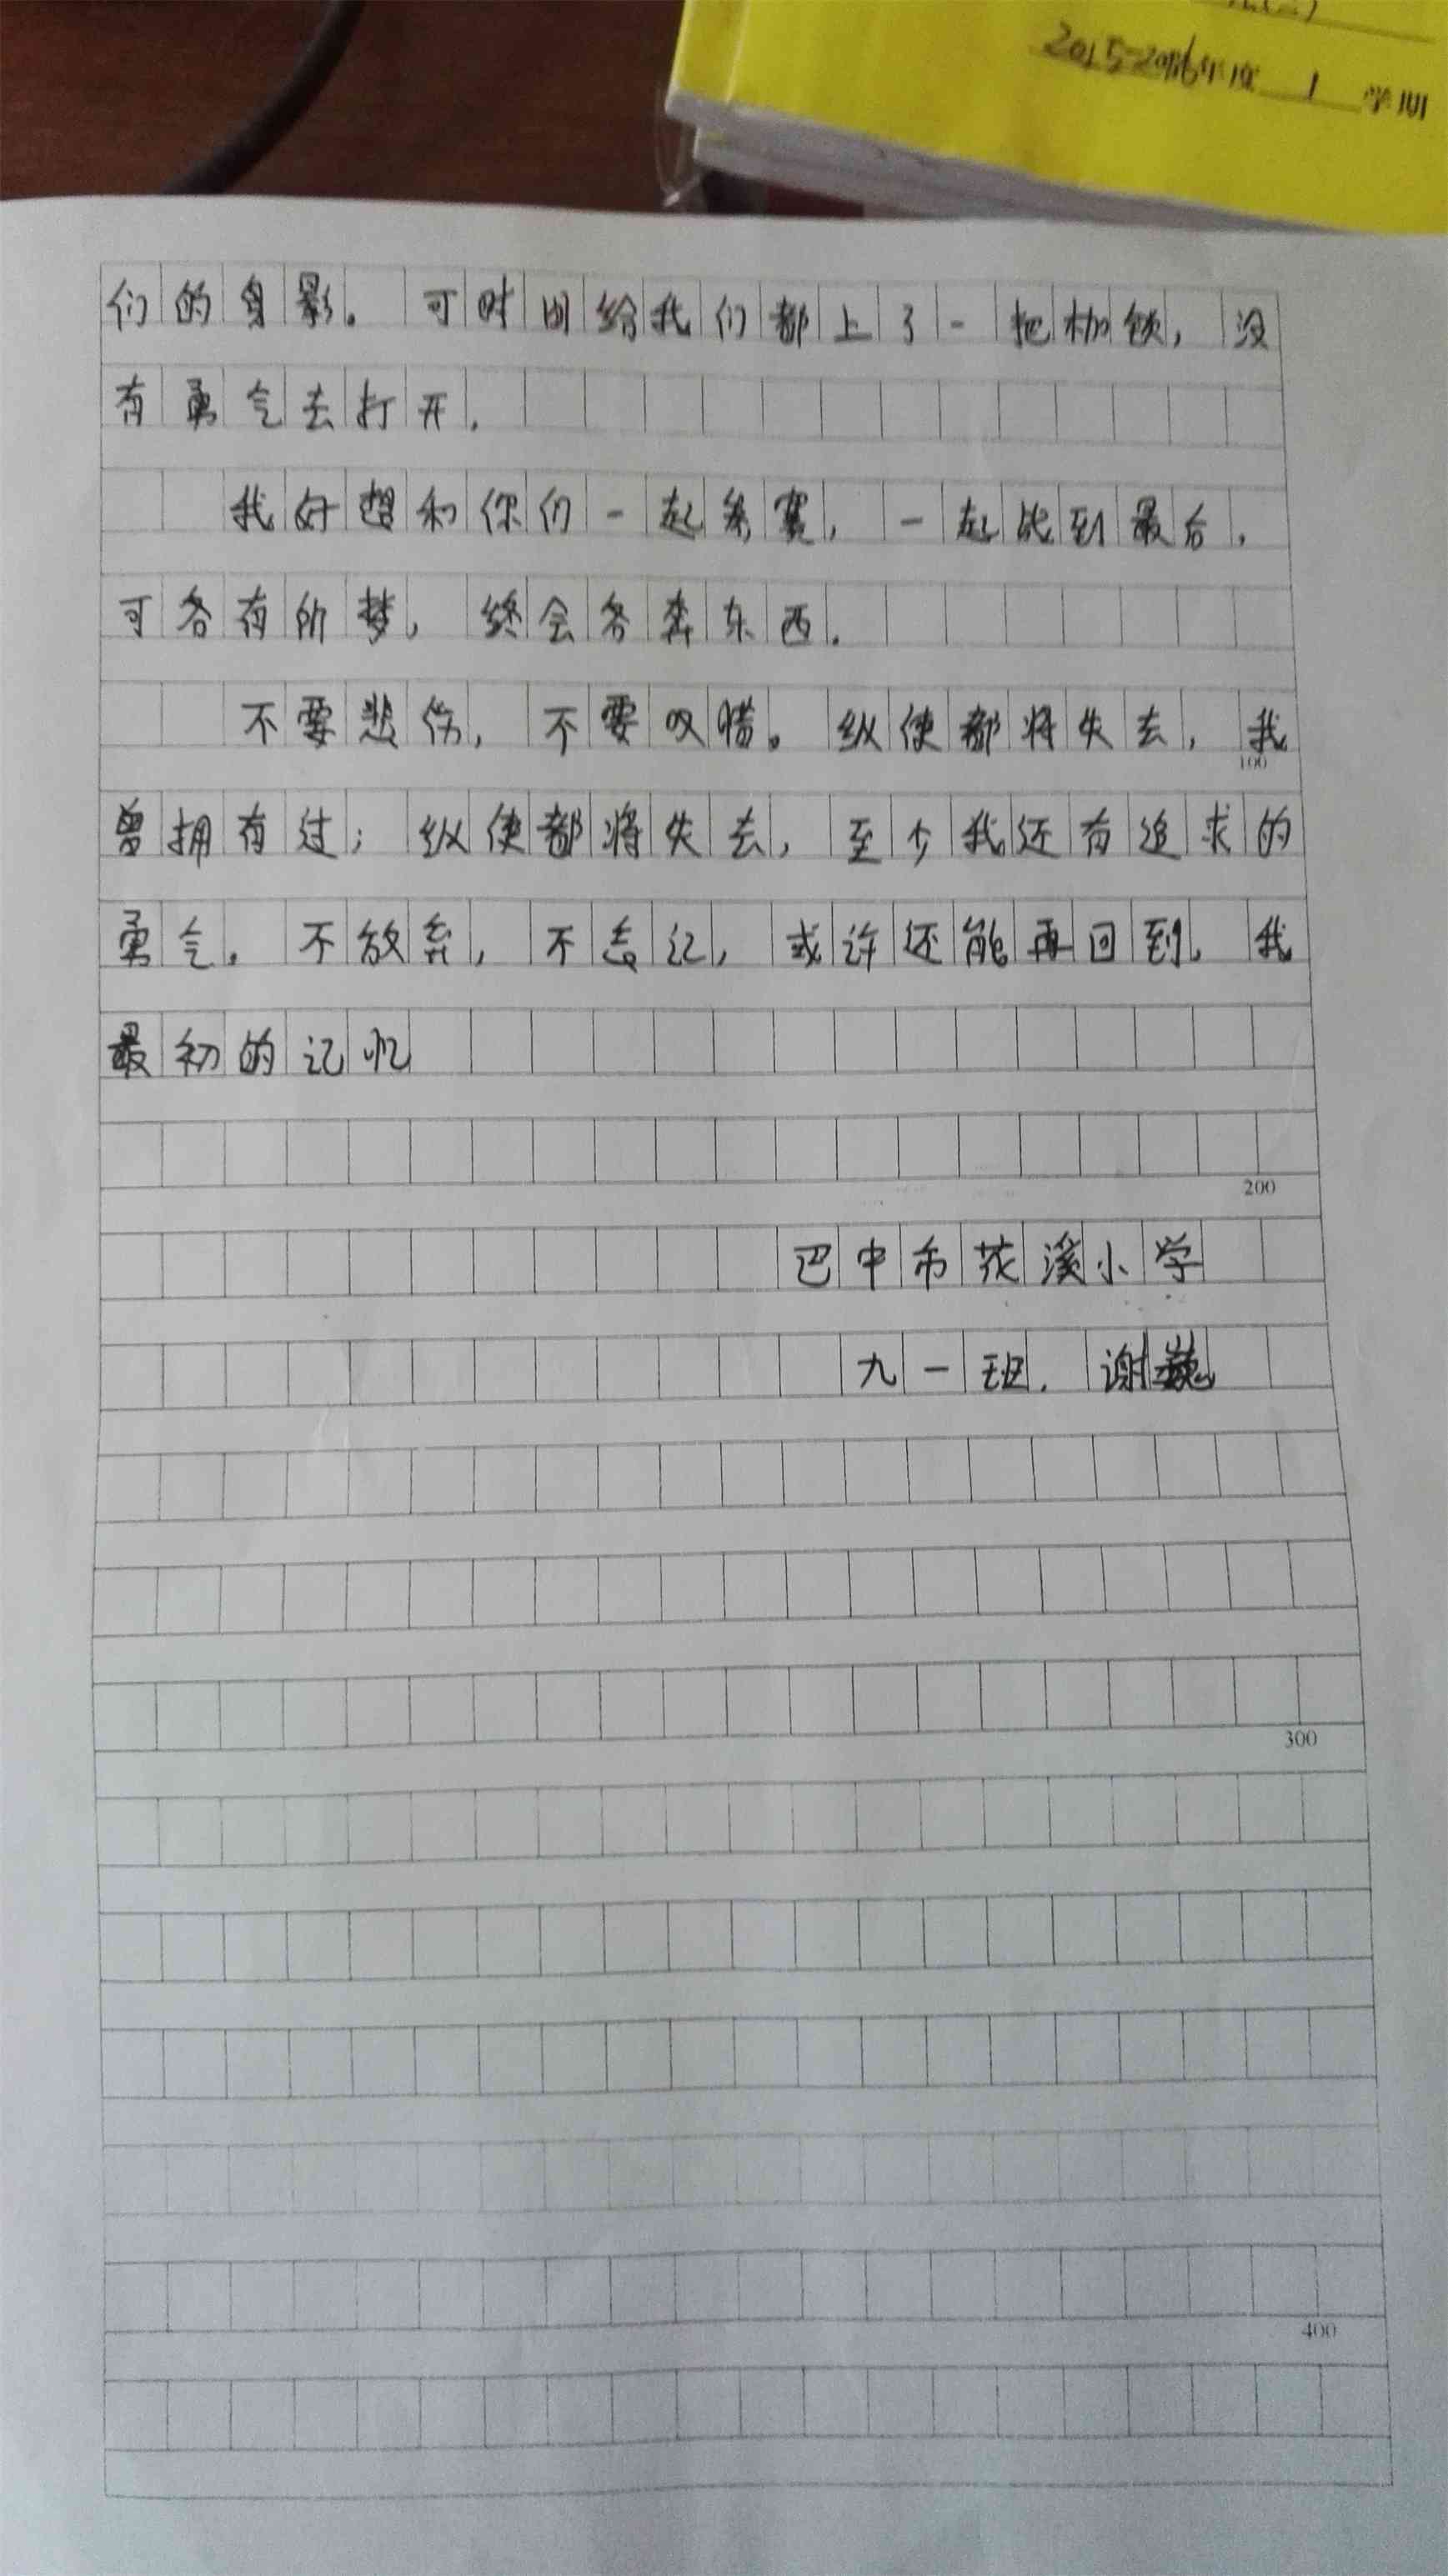 2015-2016年度 1 学期
们的身影。可时间给我们都上了一把枷锁，没
有勇气去打开.
我好想和你们一起参赛，一起比到最后，
可各有所梦，终会各奔东西.
不要悲伤，不要叹惜。纵使都将失去，我
100
曾拥有过；纵使都将失去，至少我还有追求的
勇气. 不放弃，不忘记，或许还能再回到。我
最初的记忆
200
巴中市花溪小学
九一班. 谢巍
300
400